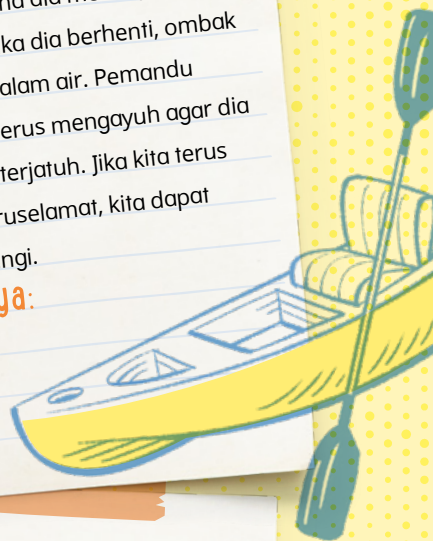 ka dia berhenti, ombak
alam air. Pemandu
erus mengayuh agar dia
terjatuh. Jika kita terus
ruselamat, kita dapat
ngi.
ya: